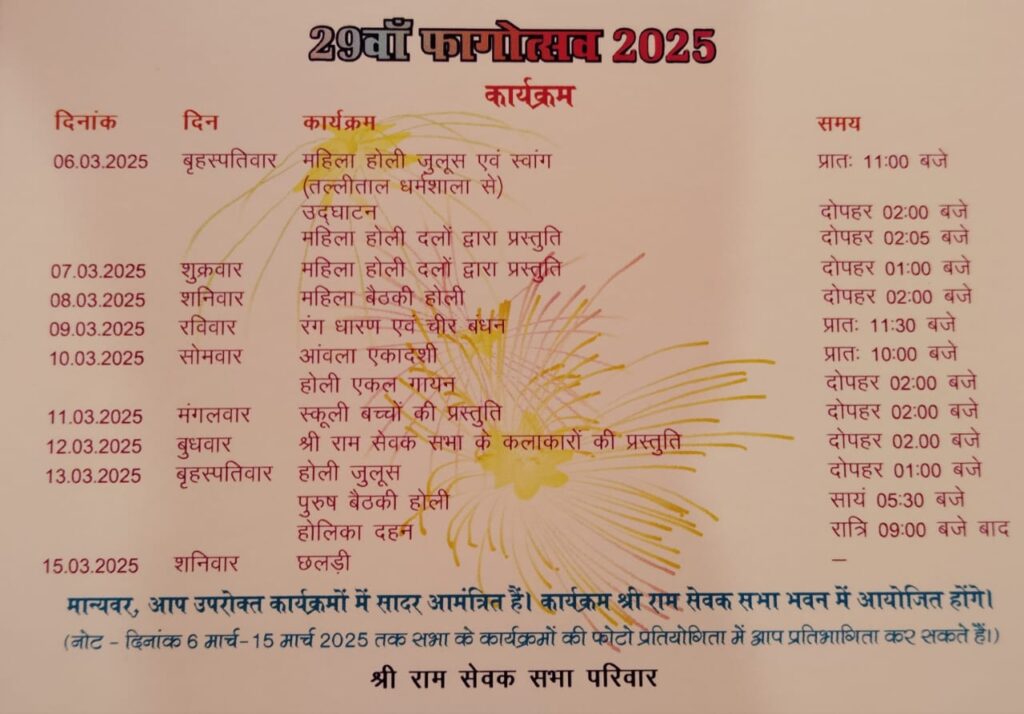 29वाँ फागोत्सव 2025
कार्यक्रम
दिनांक दिन कार्यक्रम समय
06.03.2025 बृहस्पतिवार महिला होली जुलूस एवं स्वांग प्रातः 11:00 बजे
(तल्लीताल धर्मशाला से)
उद्घाटन दोपहर 02:00 बजे
महिला होली दलों द्वारा प्रस्तुति दोपहर 02:05 बजे
07.03.2025 शुक्रवार महिला होली दलों द्वारा प्रस्तुति दोपहर 01:00 बजे
08.03.2025 शनिवार महिला बैठकी होली दोपहर 02:00 बजे
09.03.2025 रविवार रंग धारण एवं चीर बंधन प्रातः 11:30 बजे
10.03.2025 सोमवार आंवला एकादशी प्रातः 10:00 बजे
होली एकल गायन दोपहर 02:00 बजे
11.03.2025 मंगलवार स्कूली बच्चों की प्रस्तुति दोपहर 02:00 बजे
12.03.2025 बुधवार श्री राम सेवक सभा के कलाकारों की प्रस्तुति दोपहर 02.00 बजे
13.03.2025 बृहस्पतिवार होली जुलूस दोपहर 01:00 बजे
पुरुष बैठकी होली सायं 05:30 बजे
होलिका दहन रात्रि 09:00 बजे बाद
15.03.2025 शनिवार छलड़ी –
मान्यवर, आप उपरोक्त कार्यक्रमों में सादर आमंत्रित हैं। कार्यक्रम श्री राम सेवक सभा भवन में आयोजित होंगे।
(नोट - दिनांक 6 मार्च-15 मार्च 2025 तक सभा के कार्यक्रमों की फोटो प्रतियोगिता में आप प्रतिभागिता कर सकते हैं।)
श्री राम सेवक सभा परिवार